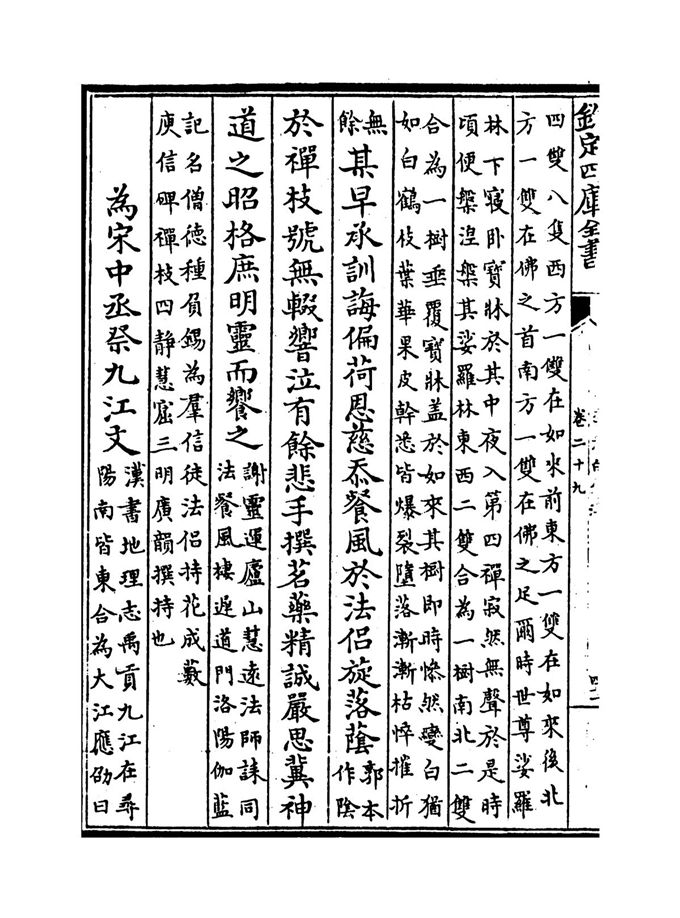 欽定四庫全書
卷二十九
四雙八隻西方一雙在如來前東方一雙在如來後北
方一雙在佛之首南方一雙在佛之足爾時世尊娑羅
林下寢卧寳牀於其中夜入第四禪寂然無聲於是時
頃便槃涅槃其娑羅林東西二雙合為一樹南北二雙
合為一樹垂覆寳牀盖於如來其樹即時慘然變白猶
如白鶴枝葉華果皮幹悉皆爆裂墮落漸漸枯悴摧折
無餘某早承訓誨偏荷恩慈忝餐風於法侣旋落蔭郭本作陰
於禪枝號無輟響泣有餘悲手撰茗藥精誠嚴思冀神
道之昭格庶明靈而饗之謝靈運廬山慧遠法師誄同
法餐風棲遲道門洛陽伽藍
記名僧徳種負錫為羣信徒法侣持花成藪
庾信碑禪枝四静慧窟三明廣韻撰持也
為宋中丞祭九江文漢書地理志禹貢九江在尋
陽南皆東合為大江應劭曰